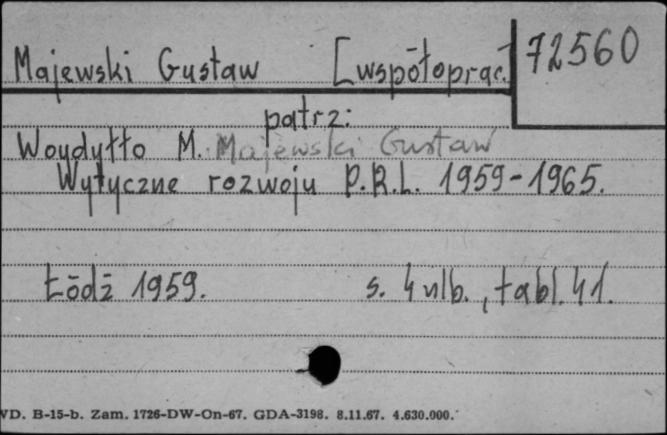 Majewski Gustaw [współoprac.] 72560
patrz:
Woydyłło M. Majewski Gustaw
Wytyczne rozwoju P.R.L. 1959-1965.
Łódź 1959. s. 4 nlb., tabl. 41.
WD. B-15-b. Zam. 1726-DW-On-67. GDA-3198. 8.11.67. 4.630.000.